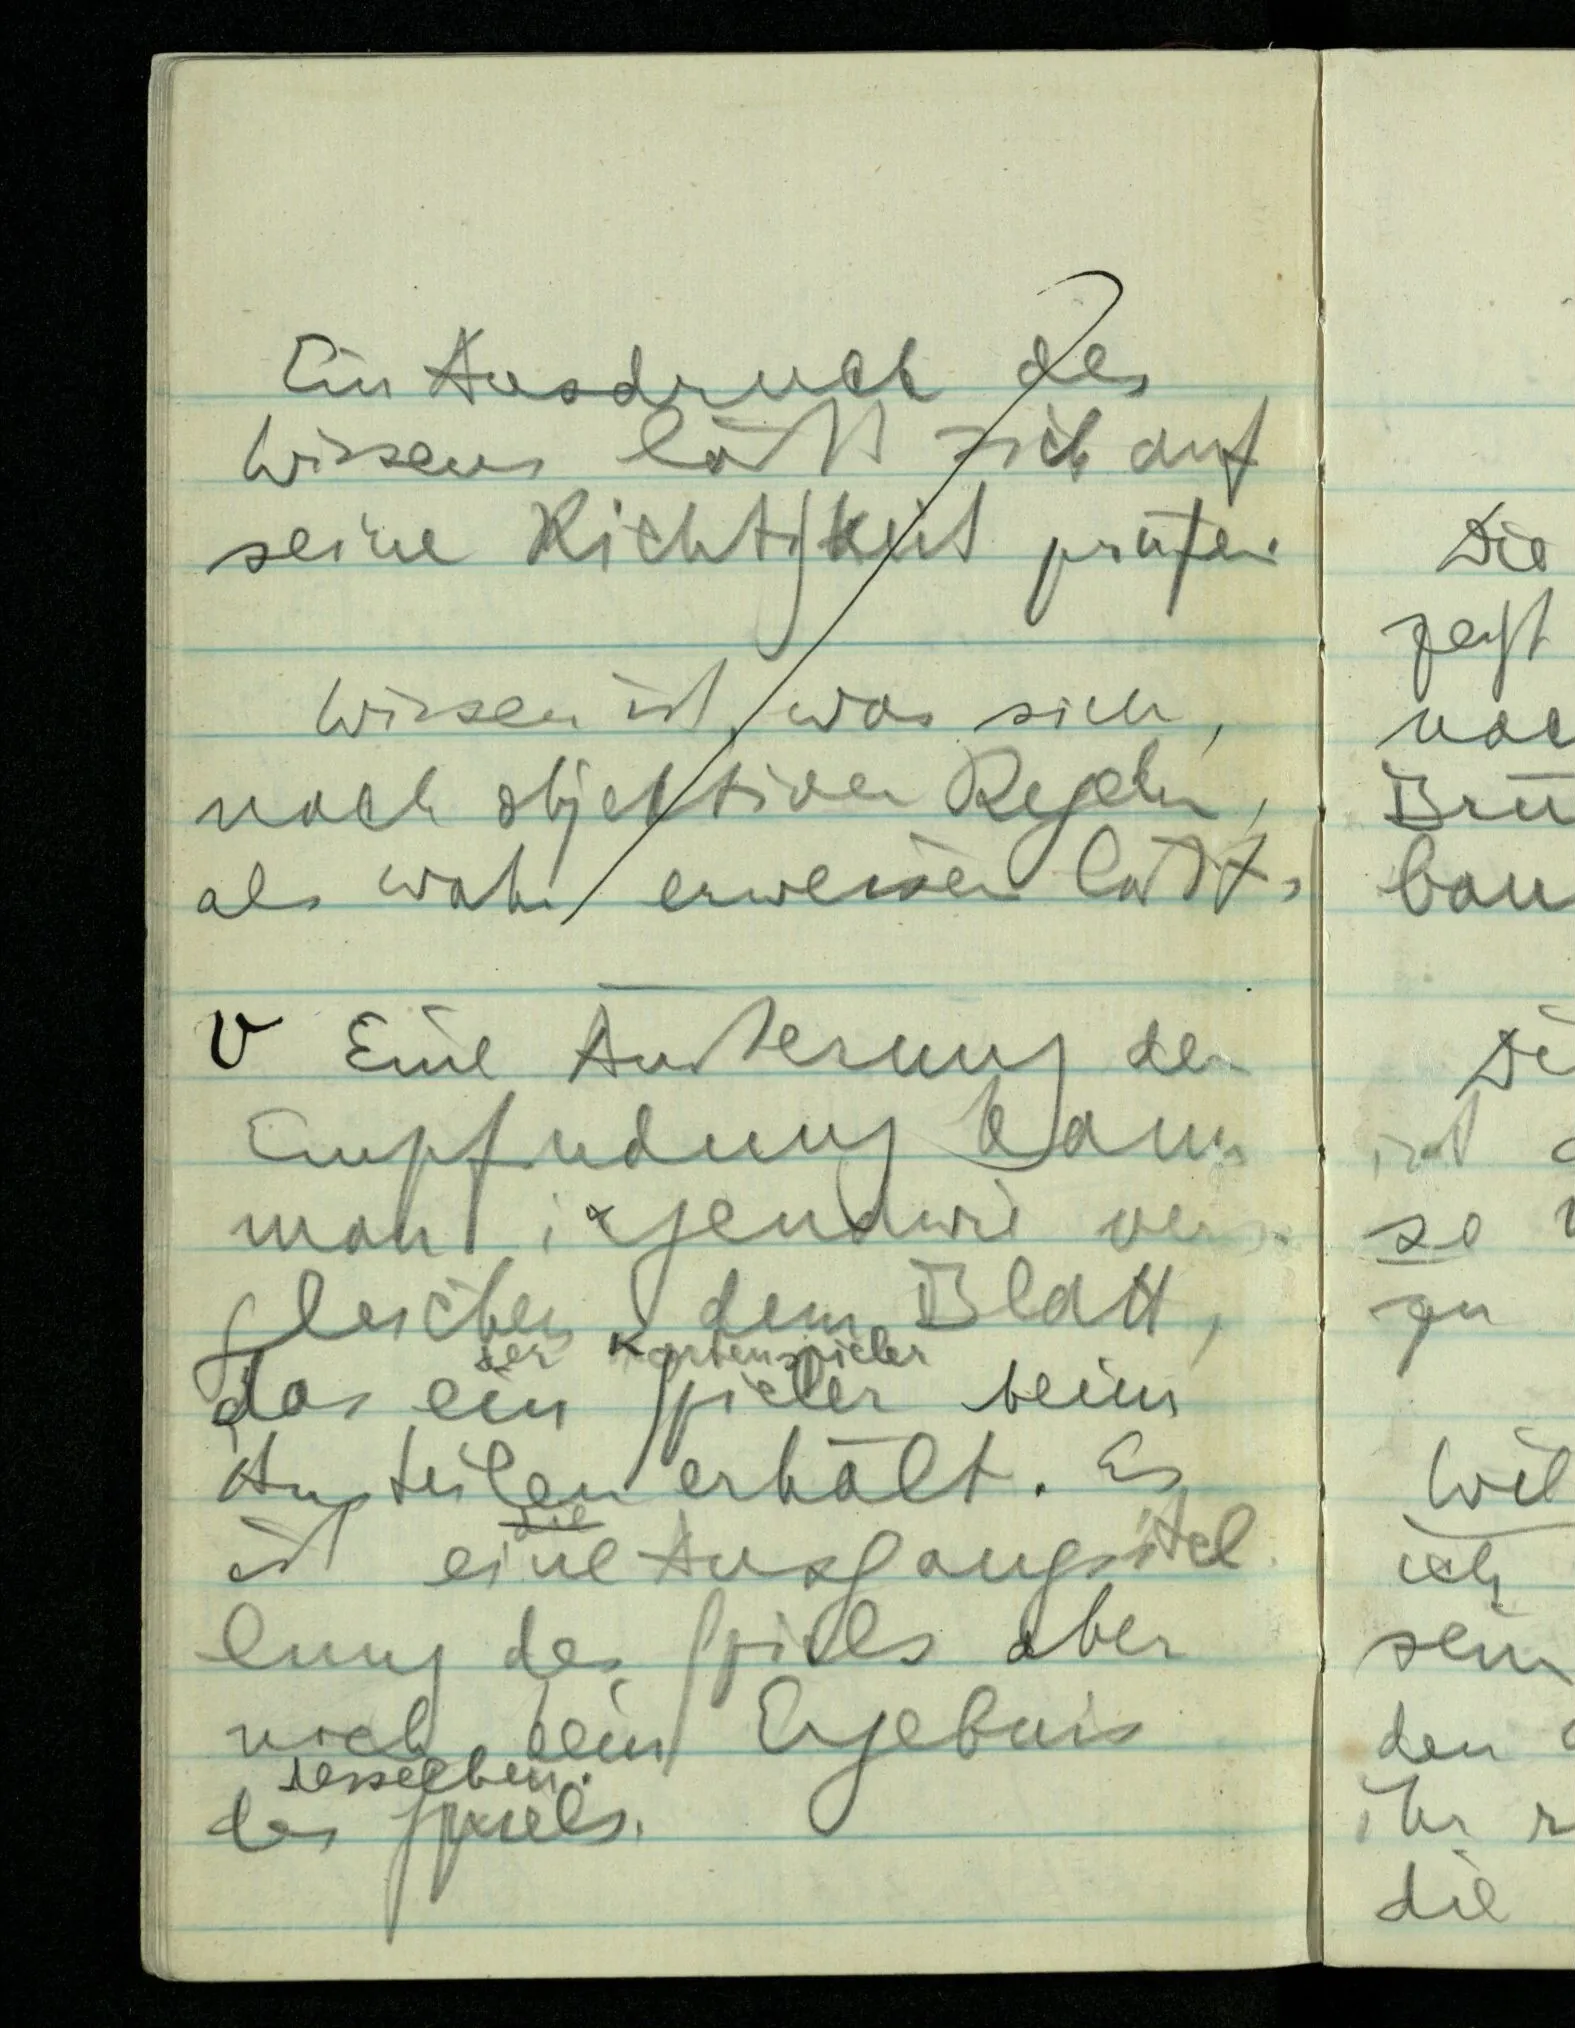 Ein Ausdruck des
Wissens läßt sich auf
seine Richtigkeit prüfen.
Wissen ist, was sich,
nach objektiven Regeln,
als wahr erweisen läßt.
V Eine Äußerung der
Empfindung kann
man irgendwie ver-
gleichen dem Blatt,
der Kartenspieler
das ein Spieler beim
Austeilen erhält. Es
die
ist eine Ausgangsstel-
lung des Spiels aber
noch kein Ergebnis
desselben.
des Spiels.
Die
zeigt
Brü
bau
Di
ist
so
zu
Wil
ich
sein
den
ihr
die